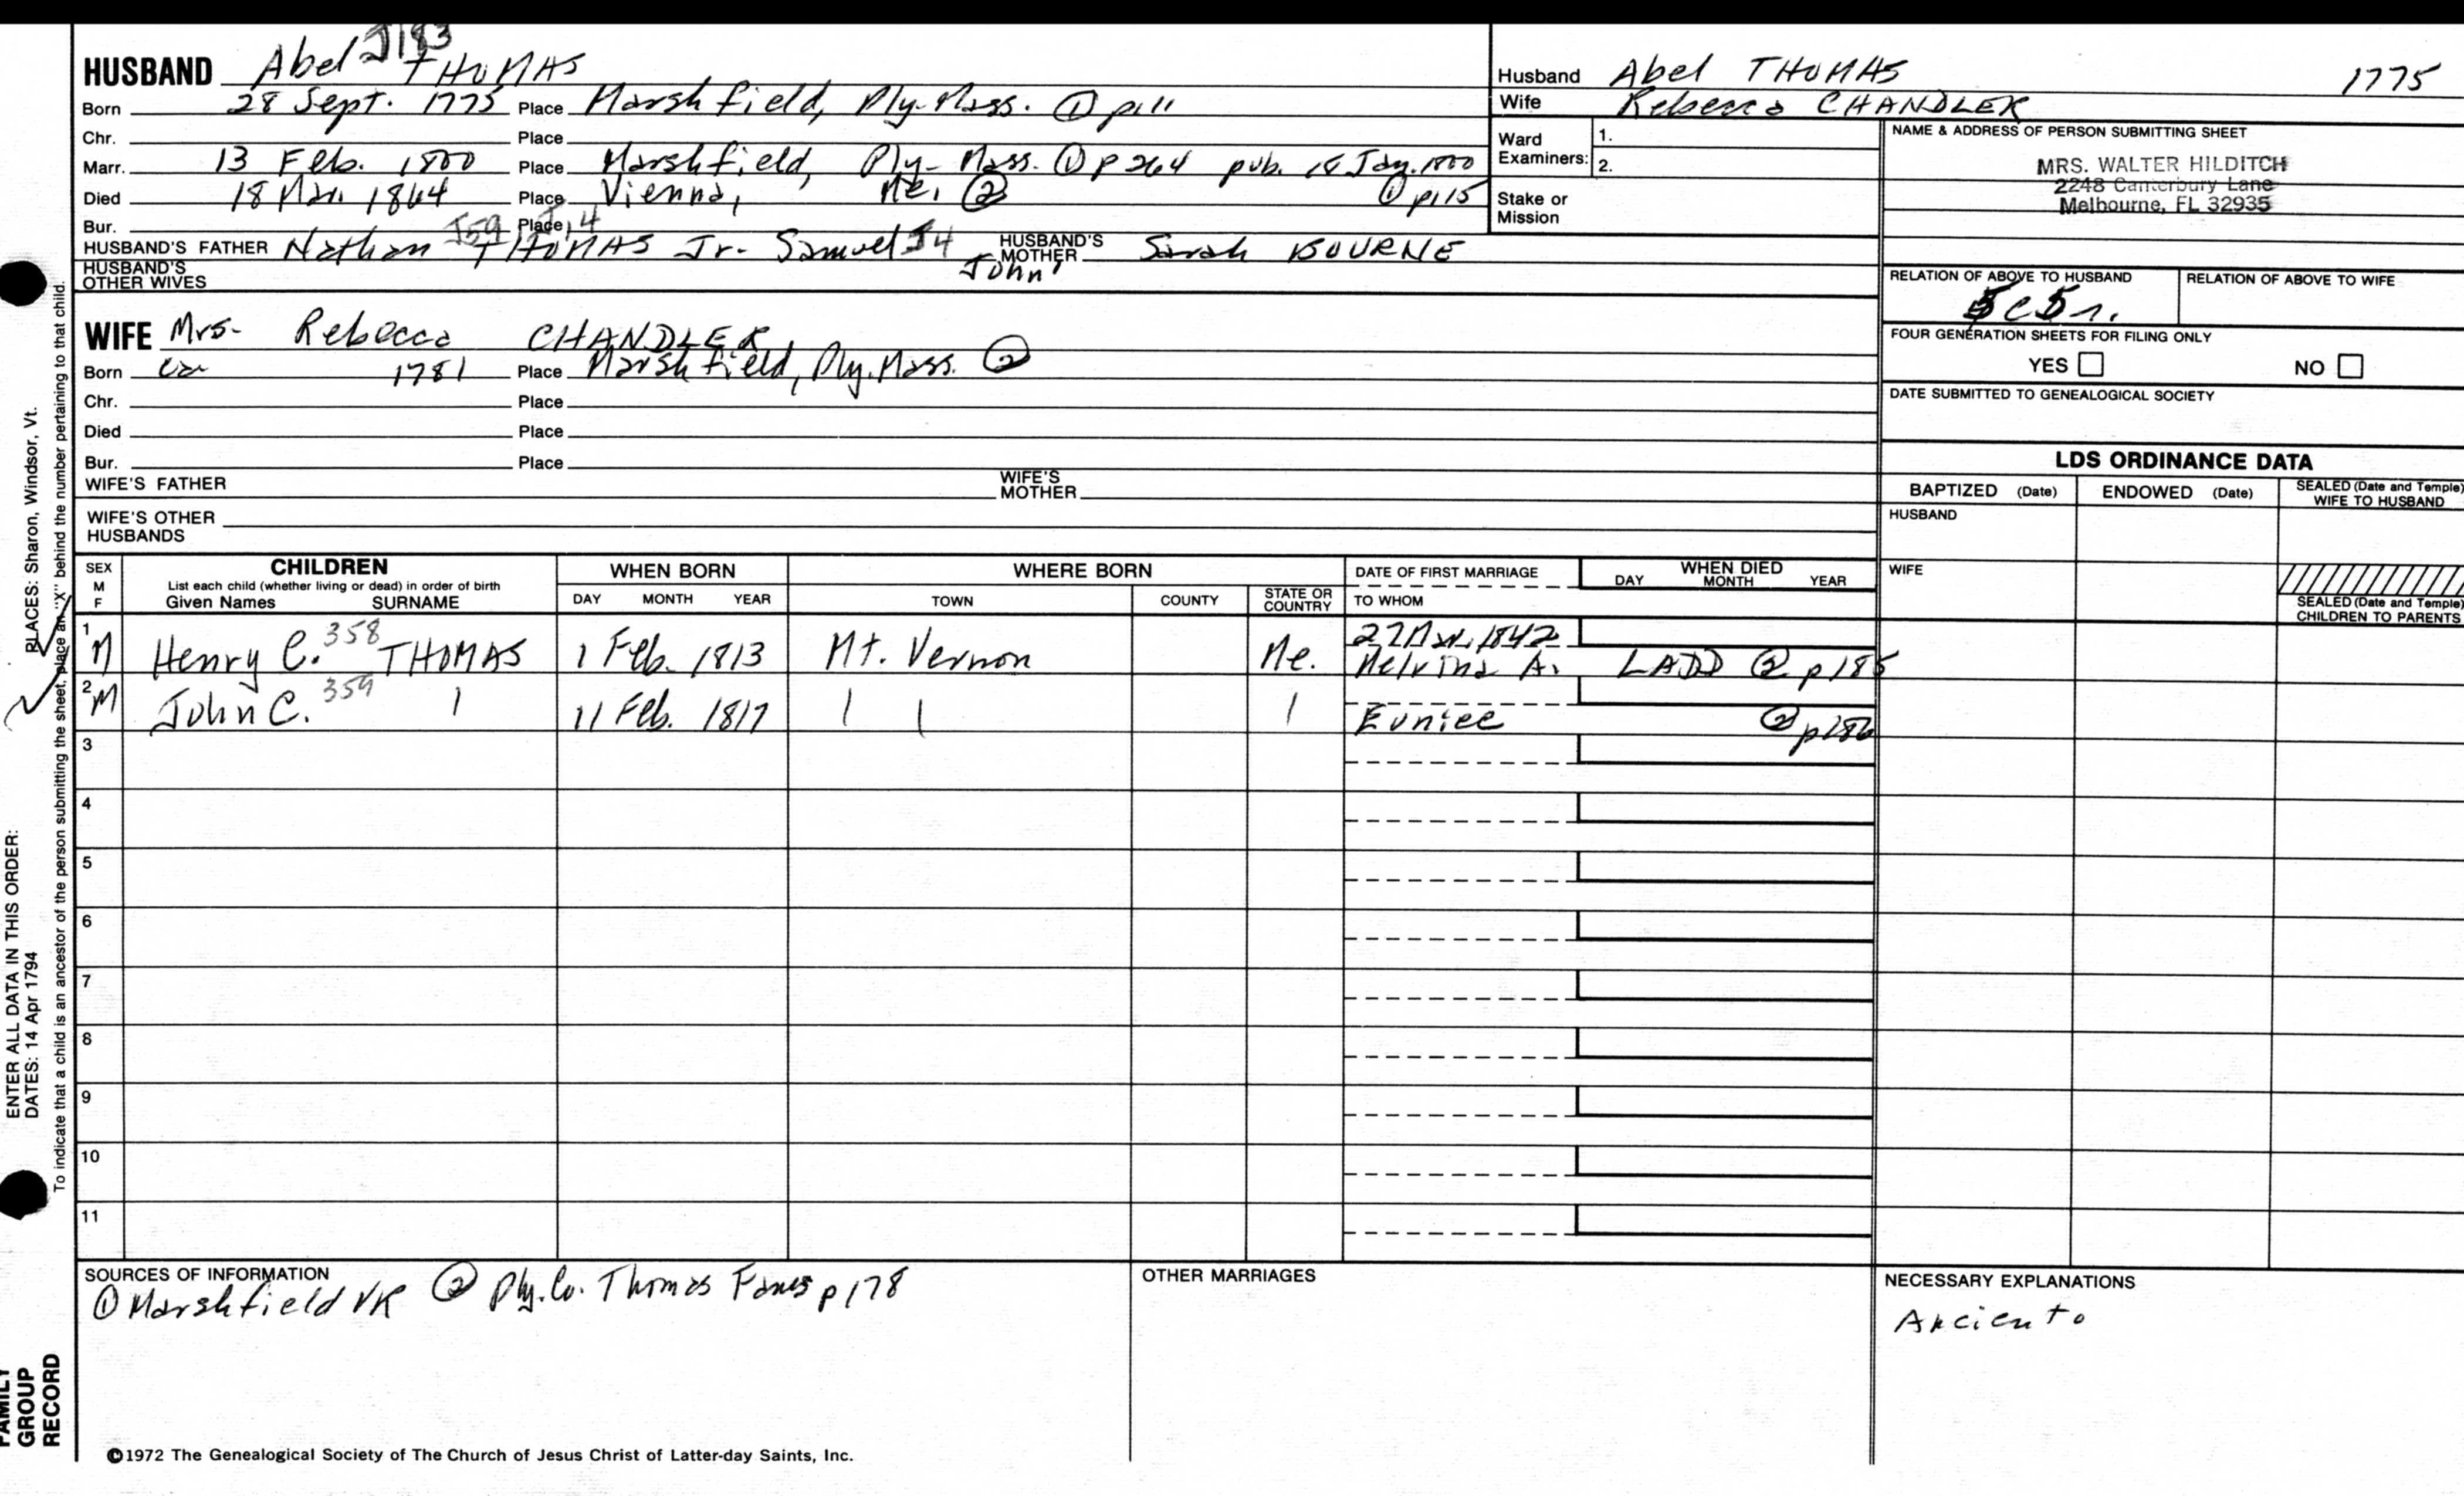 HUSBAND Abel J183 THOMAS
Born 28 Sept. 1775 Place Marshfield, Ply-Mass. ① p.11
Chr. Place
Marr. 13 Feb. 1800 Place Marshfield, Ply- Mass. ① p 264 pub. 18 Jan. 1800
Died 18 Mar. 1864 Place Vienna, Me. ② ① p115
Bur. Place
HUSBAND'S FATHER Nathan J59 THOMAS Jr- Samuel J4 John' HUSBAND'S MOTHER Sarah BOURNE
HUSBAND'S OTHER WIVES
WIFE Mrs- Rebecca CHANDLER
Born ca 1781 Place Marshfield, Ply. Mass. ②
Chr. Place
Died Place
Bur. Place
WIFE'S FATHER WIFE'S MOTHER
WIFE'S OTHER HUSBANDS
Husband Abel THOMAS 1775
Wife Rebecca CHANDLER
Ward Examiners: 1.
2.
Stake or Mission
NAME & ADDRESS OF PERSON SUBMITTING SHEET
MRS. WALTER HILDITCH
2248 Canterbury Lane
Melbourne, FL 32935
RELATION OF ABOVE TO HUSBAND RELATION OF ABOVE TO WIFE
5c5r.
FOUR GENERATION SHEETS FOR FILING ONLY
YES NO
DATE SUBMITTED TO GENEALOGICAL SOCIETY
LDS ORDINANCE DATA
BAPTIZED (Date) ENDOWED (Date) SEALED (Date and Temple) WIFE TO HUSBAND
HUSBAND
WIFE
SEALED (Date and Temple) CHILDREN TO PARENTS
SEX M F
CHILDREN
List each child (whether living or dead) in order of birth
Given Names SURNAME
WHEN BORN
DAY MONTH YEAR
WHERE BORN
TOWN COUNTY STATE OR COUNTRY
DATE OF FIRST MARRIAGE
TO WHOM
WHEN DIED
DAY MONTH YEAR
1 M Henry C. 358 THOMAS 1 Feb. 1813 Mt. Vernon Me. 27 Mar. 1842
Melvina A. LADD ② p185
2 M John C. 359 11 Feb. 1817 Eunice ② p186
3
4
5
6
7
8
9
10
11
SOURCES OF INFORMATION
① Marshfield VR ② Ply. Co. Thomas Fams p178
OTHER MARRIAGES
NECESSARY EXPLANATIONS
©1972 The Genealogical Society of The Church of Jesus Christ of Latter-day Saints, Inc.
FAMILY GROUP RECORD
ENTER ALL DATA IN THIS ORDER:
DATES: 14 Apr 1794
PLACES: Sharon, Windsor, Vt.
To indicate that a child is an ancestor of the person submitting the sheet, place an "X" behind the number pertaining to that child.